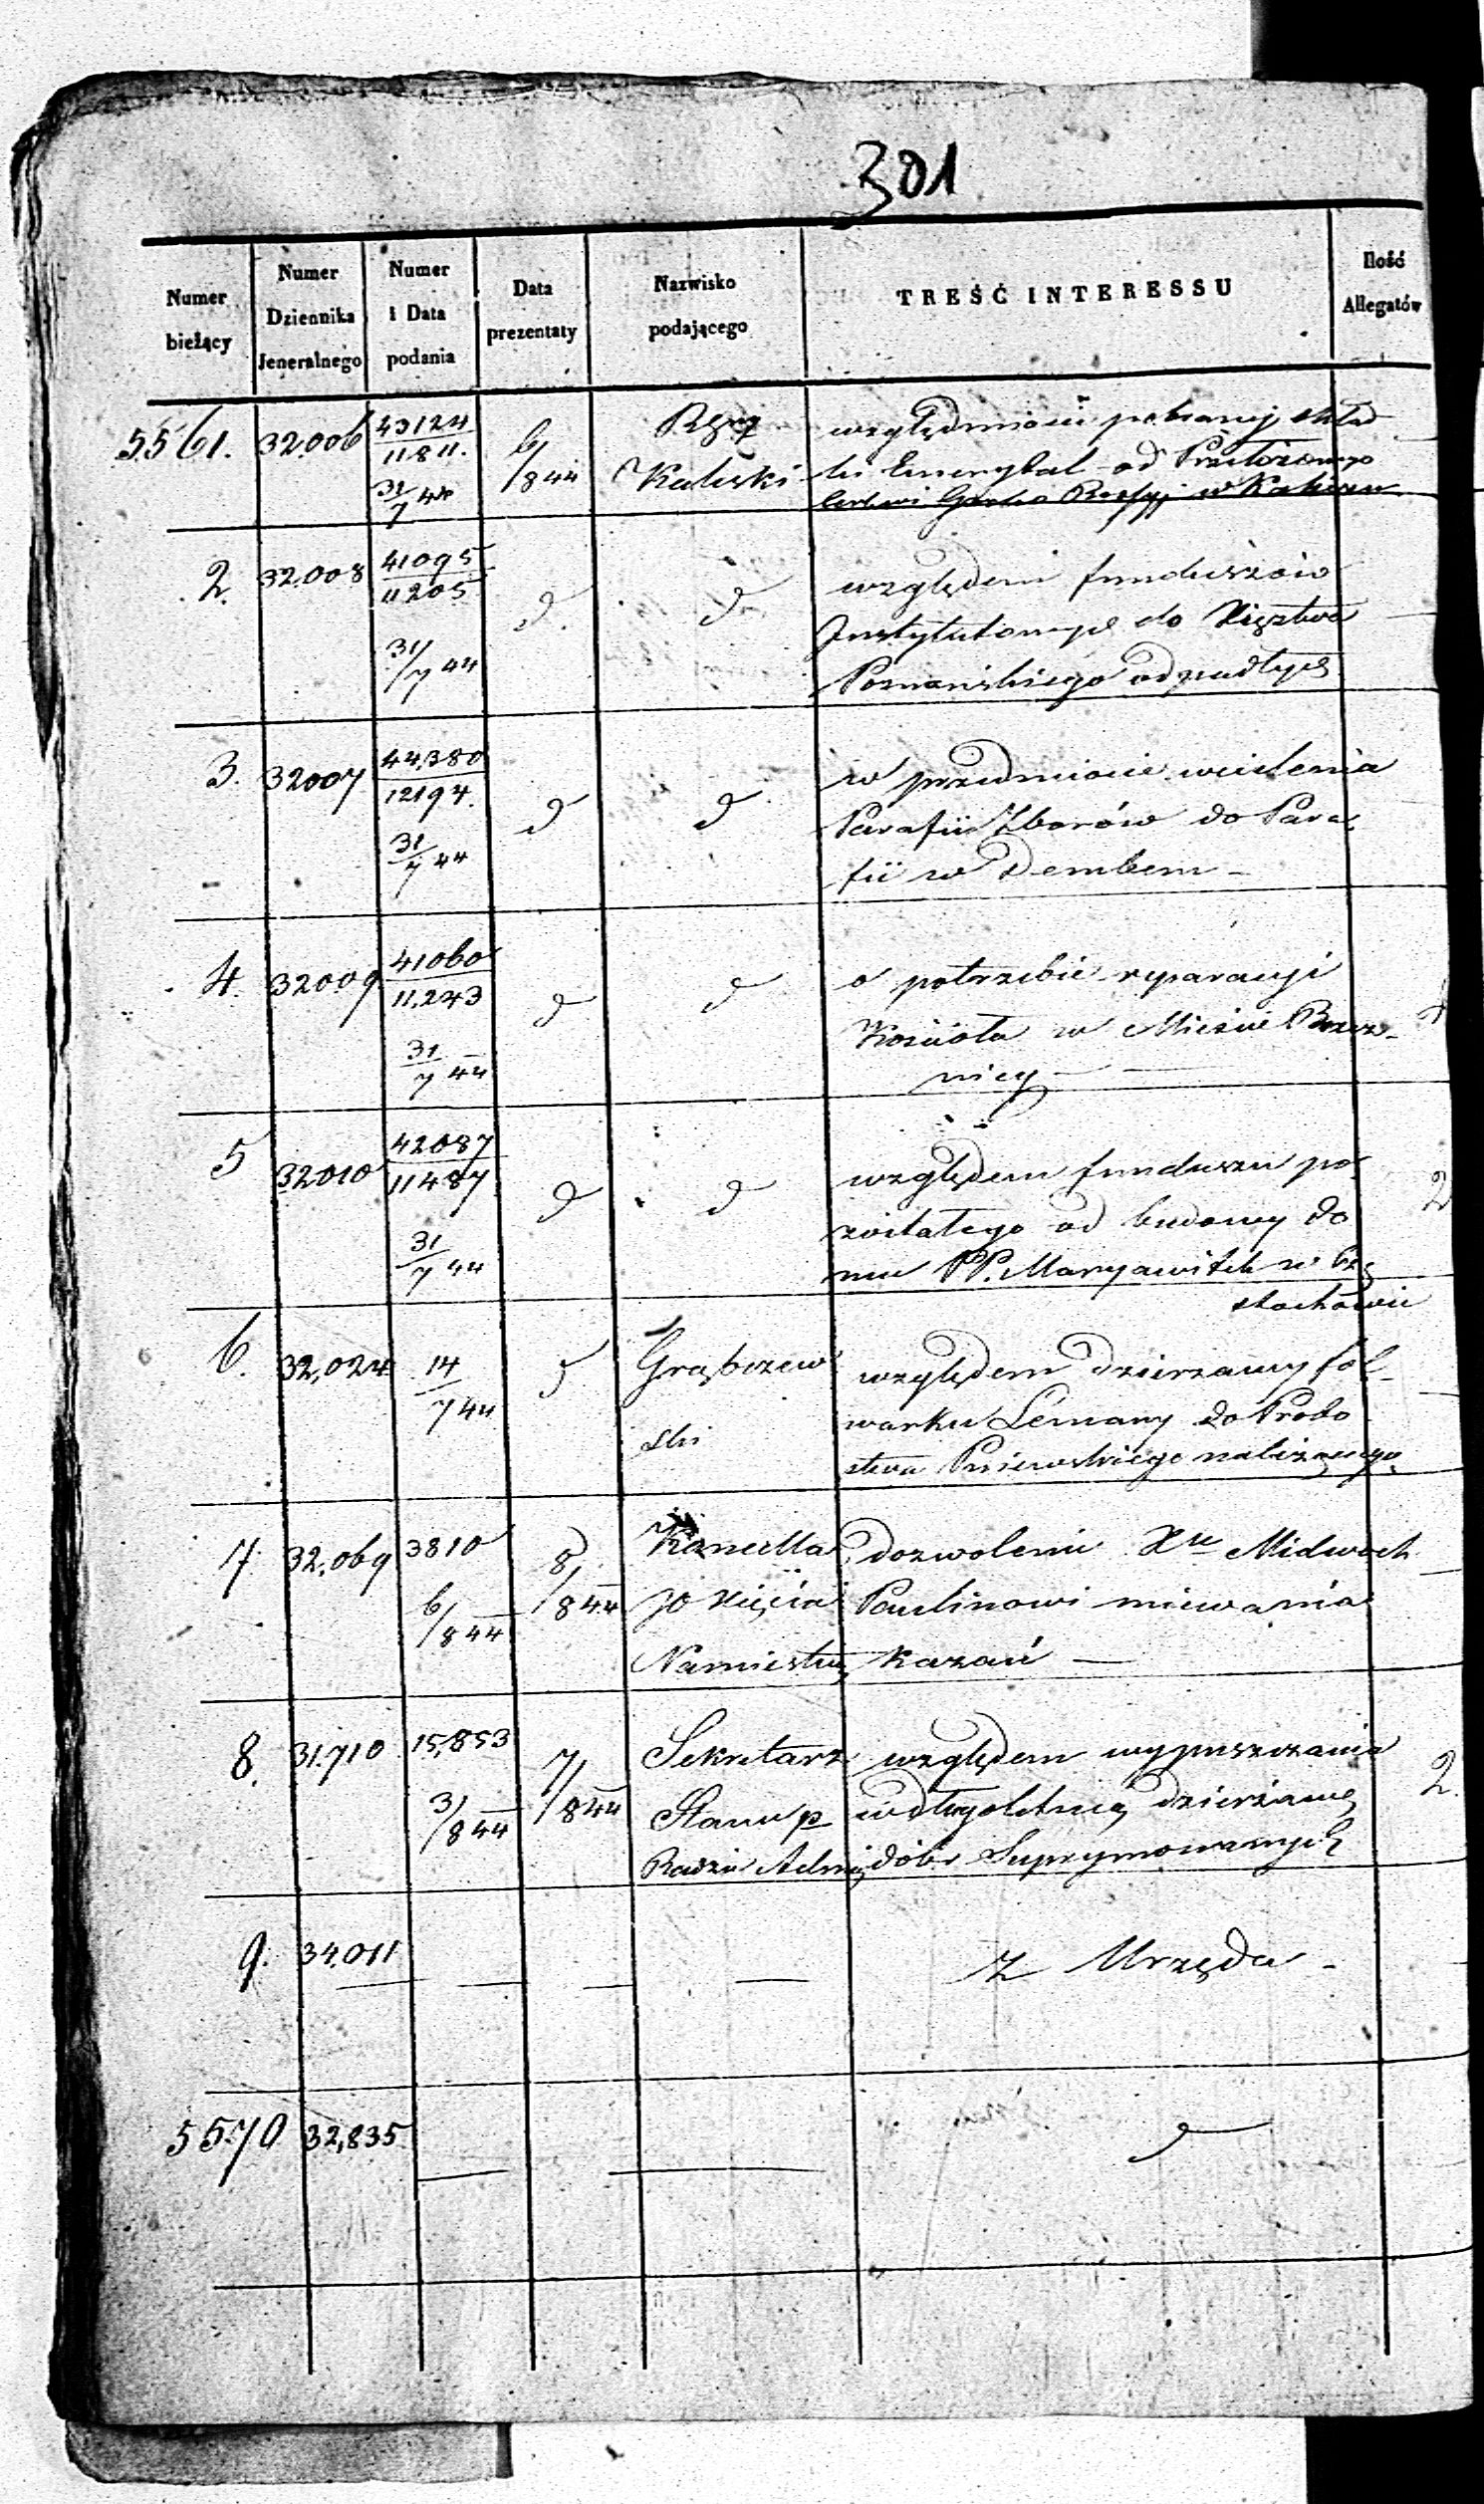 301
Numer bieżący | Numer Dziennika Jeneralnego | Numer i Data podania | Data prezentaty | Nazwisko podającego | TREŚĆ INTERESSU | Ilość Allegatów
5561. | 32006 | 43124/11811. 31/7 44 | 6/8 44 | Rząd
Kaliski | względności pobranej skład
ki Emerytal od Przełożonego
w Kaliszu
2. | 32.008 | 41095/11205 31/7 44 | d. | d | względem funduszów
Instytutowych do Xięztwa
Poznańskiego odpadłych
3. | 32007 | 44,380/12194. 31/7 44 | d | d | w przedmiocie wcielenia
Parafii Zborów do Para
fii w Dembem –
4. | 32009 | 41060/11,243 31/7 44 | d | d | o potrzebie reparacyi
Kościoła w Mieście Brzez-
nicy –
5 | 32010 | 42087/11487 31/7 44 | d | d | względem funduszu po | 2
zostałego od budowy do
mu PP. Maryawitek w Czę
stochowie
6. | 32,024 | 14/7 44 | 5 | Grąbczew
ski | względem dzierzawy fol-
warku Lemany do Probo
stwa Pniewskiego należącego
7. | 32,069 | 3810 6/8 44 | 8/8 44 | Kancella
JO Xięcia
Namiestni | dozwolenie Xu Midwoch
Paulinowi miewania
kazań —
8. | 31.710 | 15,853 3/8 44 | 7/8 44 | Sekretarz
Stanu p
Radzie Admi | względem wypuszczania | 2.
w długoletnią dzierżawę
dóbr Suprymowanych
9. | 34,011 | — | — | — | z Urzędu -
5570 | 32,835 | — | — | d —